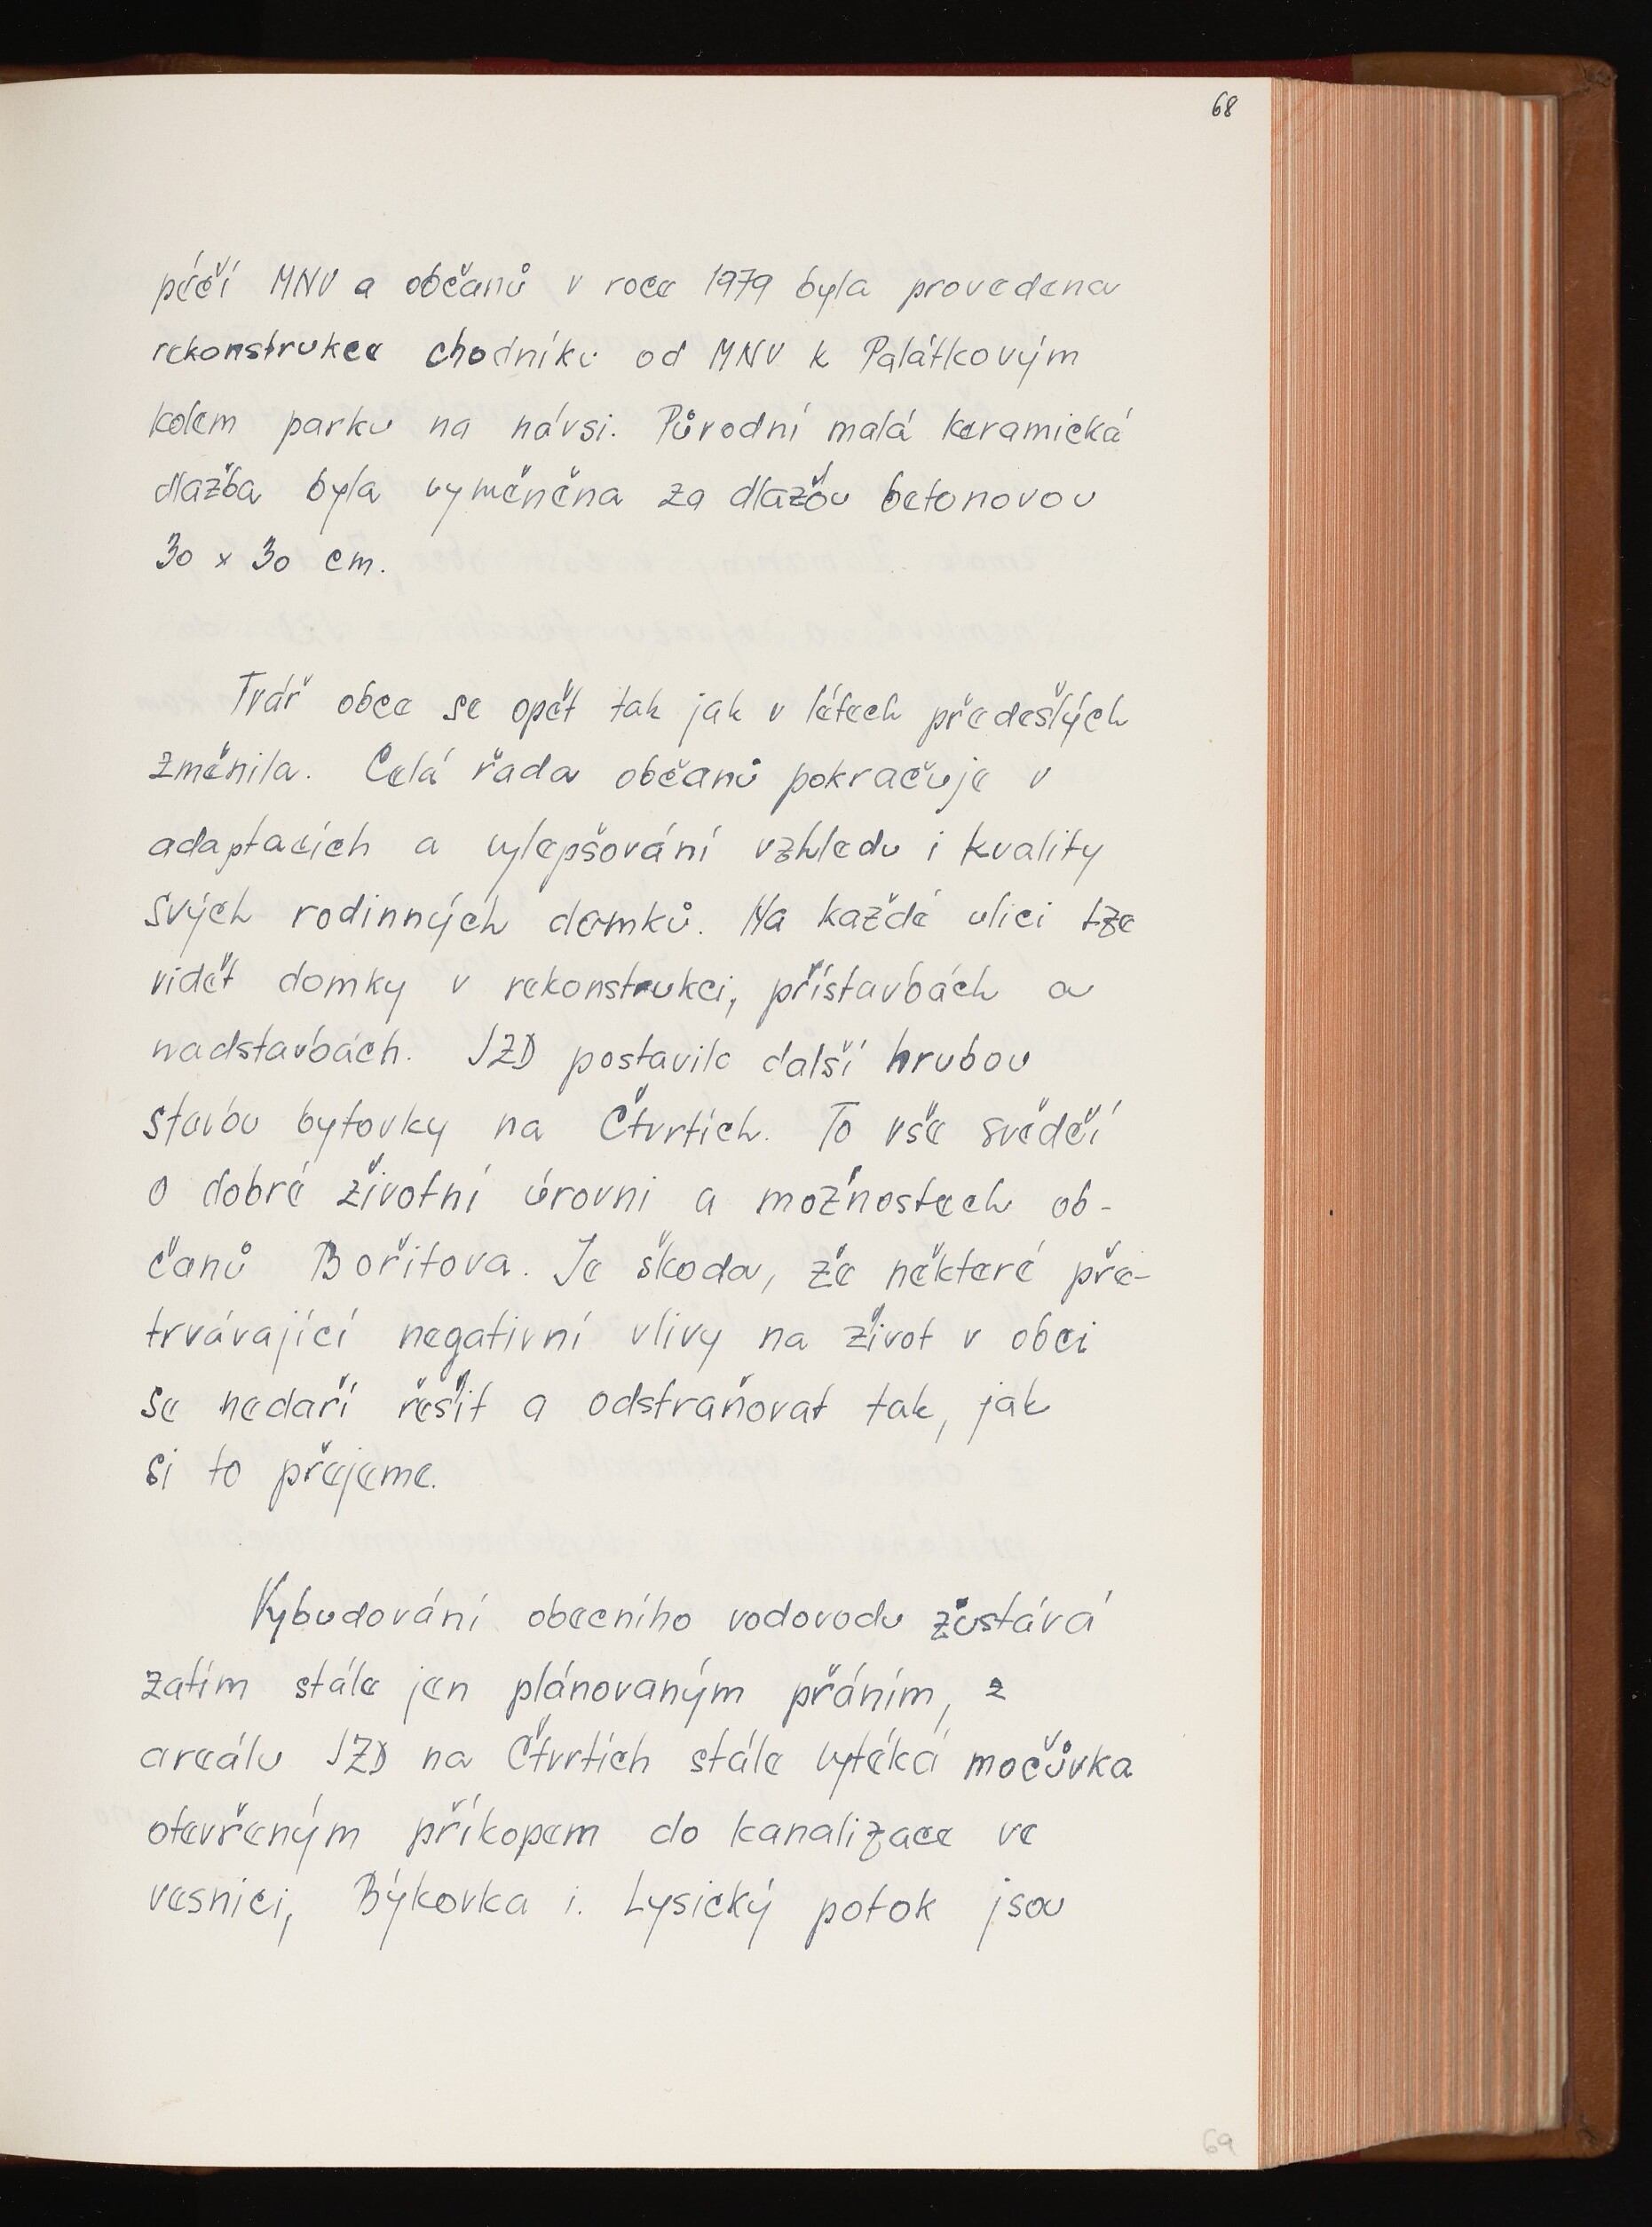 68
péčí MNV a občanů v roce 1979 byla provedena
rekonstrukce chodníku od MNV k Palátkovým
kolem parku na návsi. Původní malá keramická
dlažba byla vyměněna za dlažbu betonovou
30 x 30 cm.
Tvář obce se opět tak jak v létech předešlých
změnila. Celá řada občanů pokračuje v
adaptacích a vylepšování vzhledu i kvality
svých rodinných domků. Na každé ulici lze
vidět domky v rekonstrukci, přístavbách a
nadstavbách. JZD postavilo další hrubou
stavbu bytovky na Čtvrtích. To vše svědčí
o dobré životní úrovni a možnostech ob-
čanů Bořitova. Je škoda, že některé pře-
trvávající negativní vlivy na život v obci
se nedaří řešit a odstraňovat tak, jak
si to přejeme.
Vybudování obecního vodovodu zůstává
zatím stále jen plánovaným přáním, z
areálu JZD na Čtvrtích stále vytéká močůvka
otevřeným příkopem do kanalizace ve
vesnici, Býkovka i. Lysický potok jsou
69